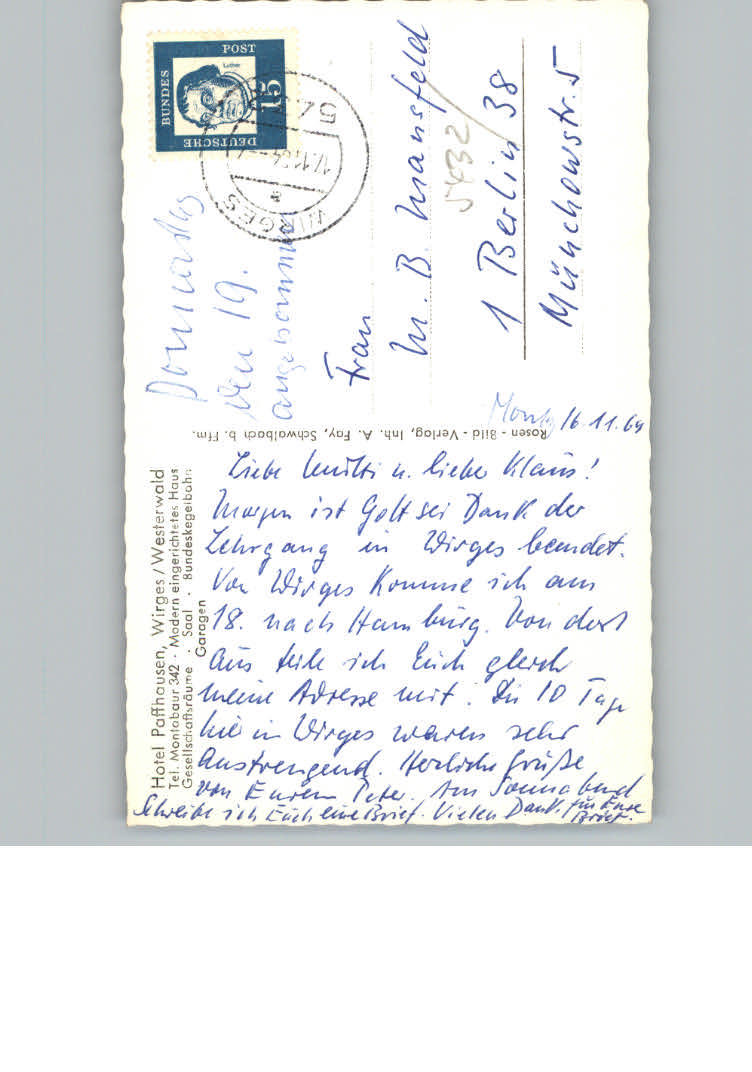 Hotel Paffhausen, Wirges/Westerwald
Tel. Montabaur 342 · Modern eingerichtetes Haus
Gesellschaftsräume · Saal · Bundeskegelbahn
Garagen
16.11.64
Liebe Mutti u. lieber Klaus!
Morgen ist Gott sei Dank der
Lehrgang in Wirges beendet.
Von Wirges komme ich am
18. nach Hamburg. Von dort
aus teile ich Euch gleich
meine Adresse mit. Die 10 Tage
hier in Wirges waren sehr
anstrengend. Herzliche Grüße
von Eurem Peter. Am Sonnabend
schreibe ich Euch eine Brief. Vielen Dank für Eure
Brief.
Rosen-Bild-Verlag, Inh. A. Fay, Schwalbach b. Ffm.
DEUTSCHE
BUNDES
POST
Luther
15
WIRGES
17.11.64
a
Donnerstag
den 19.
angekommen
Frau
M. B. Mansfeld
5432
1 Berlin 38
Münchowstr. 5